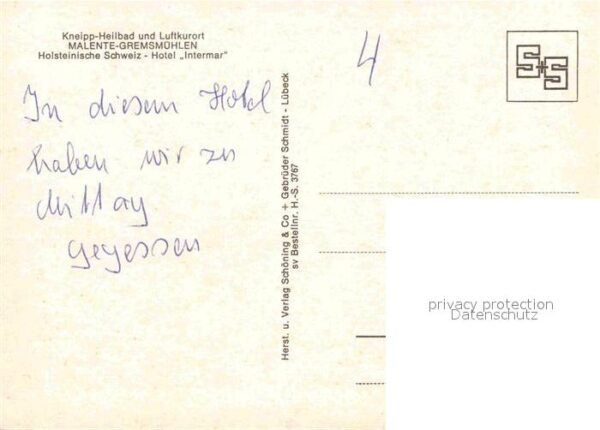 Kneipp-Heilbad und Luftkurort
MALENTE-GREMSMÜHLEN
Holsteinische Schweiz - Hotel „Intermar"
In diesem Hotel
haben wir zu
Mittag
gegessen
4
S+S
Herst. u. Verlag Schöning & Co + Gebrüder Schmidt - Lübeck
sv Bestellnr. H.-S. 3767
privacy protection
Datenschutz